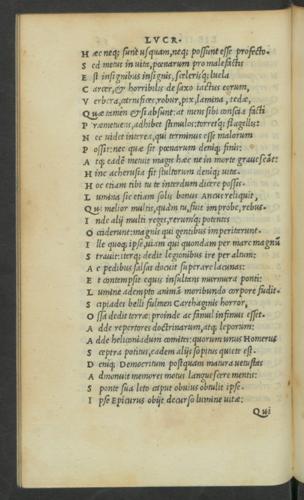 LVCR.
H æc neq; sunt usquam, neq; possunt esse profecto.
S ed metus in uita, pœnarum pro malefactis
E st insignibus insignis, scelerisq; luela
C arcer, & horribilis de saxo iactus eorum,
V erbera, carnifices, robur, pix, lamina, tedæ,
Q uæ tamen & si absunt: at mens sibi conscia facti
P ræmetuens, adhibet stimulos: torretq; flagellis:
N ec uidet interea, qui terminus esse malorum
P ossit: nec quæ sit pœnarum deniq; finis:
A tq; eadē metuit magis hæc ne in morte grauescāt:
H inc acherusia fit stultorum deniq; uita.
H oc etiam tibi tu te interdum dicere possis.
L umina sis etiam solis bonus Ancu' reliquit,
Q ui melior multis, quàm tu, fuit improbe, rebus.
I nde alij multi reges, rerumq; potentes
O cciderunt: magnis qui gentibus imperiterunt.
I lle quoq; ipse, uiam qui quondam per mare magnū
S trauit: iterq; dedit legionibus ire per altum:
A c pedibus salsas docuit superare lacunas:
E t contempsit equis insultans murmura ponti:
L umine adempto animā moribundo corpore fudit.
S cipiades belli fulmen Carthaginis horror,
O ssa dedit terræ: proinde ac famul infimus esset.
A dde repertores doctrinarum, atq; leporum:
A dde heliconiadum comites: quorum unus Homerus
S ceptra potitus, eadem alijs sopitus quiete est.
D eniq; Democritum postquam matura uetustas
A dmonuit memores motus languescere mentis:
S ponte sua leto caput obuius obtulit ipse.
I pse Epicurus obijt decurso lumine uitæ:
Qui